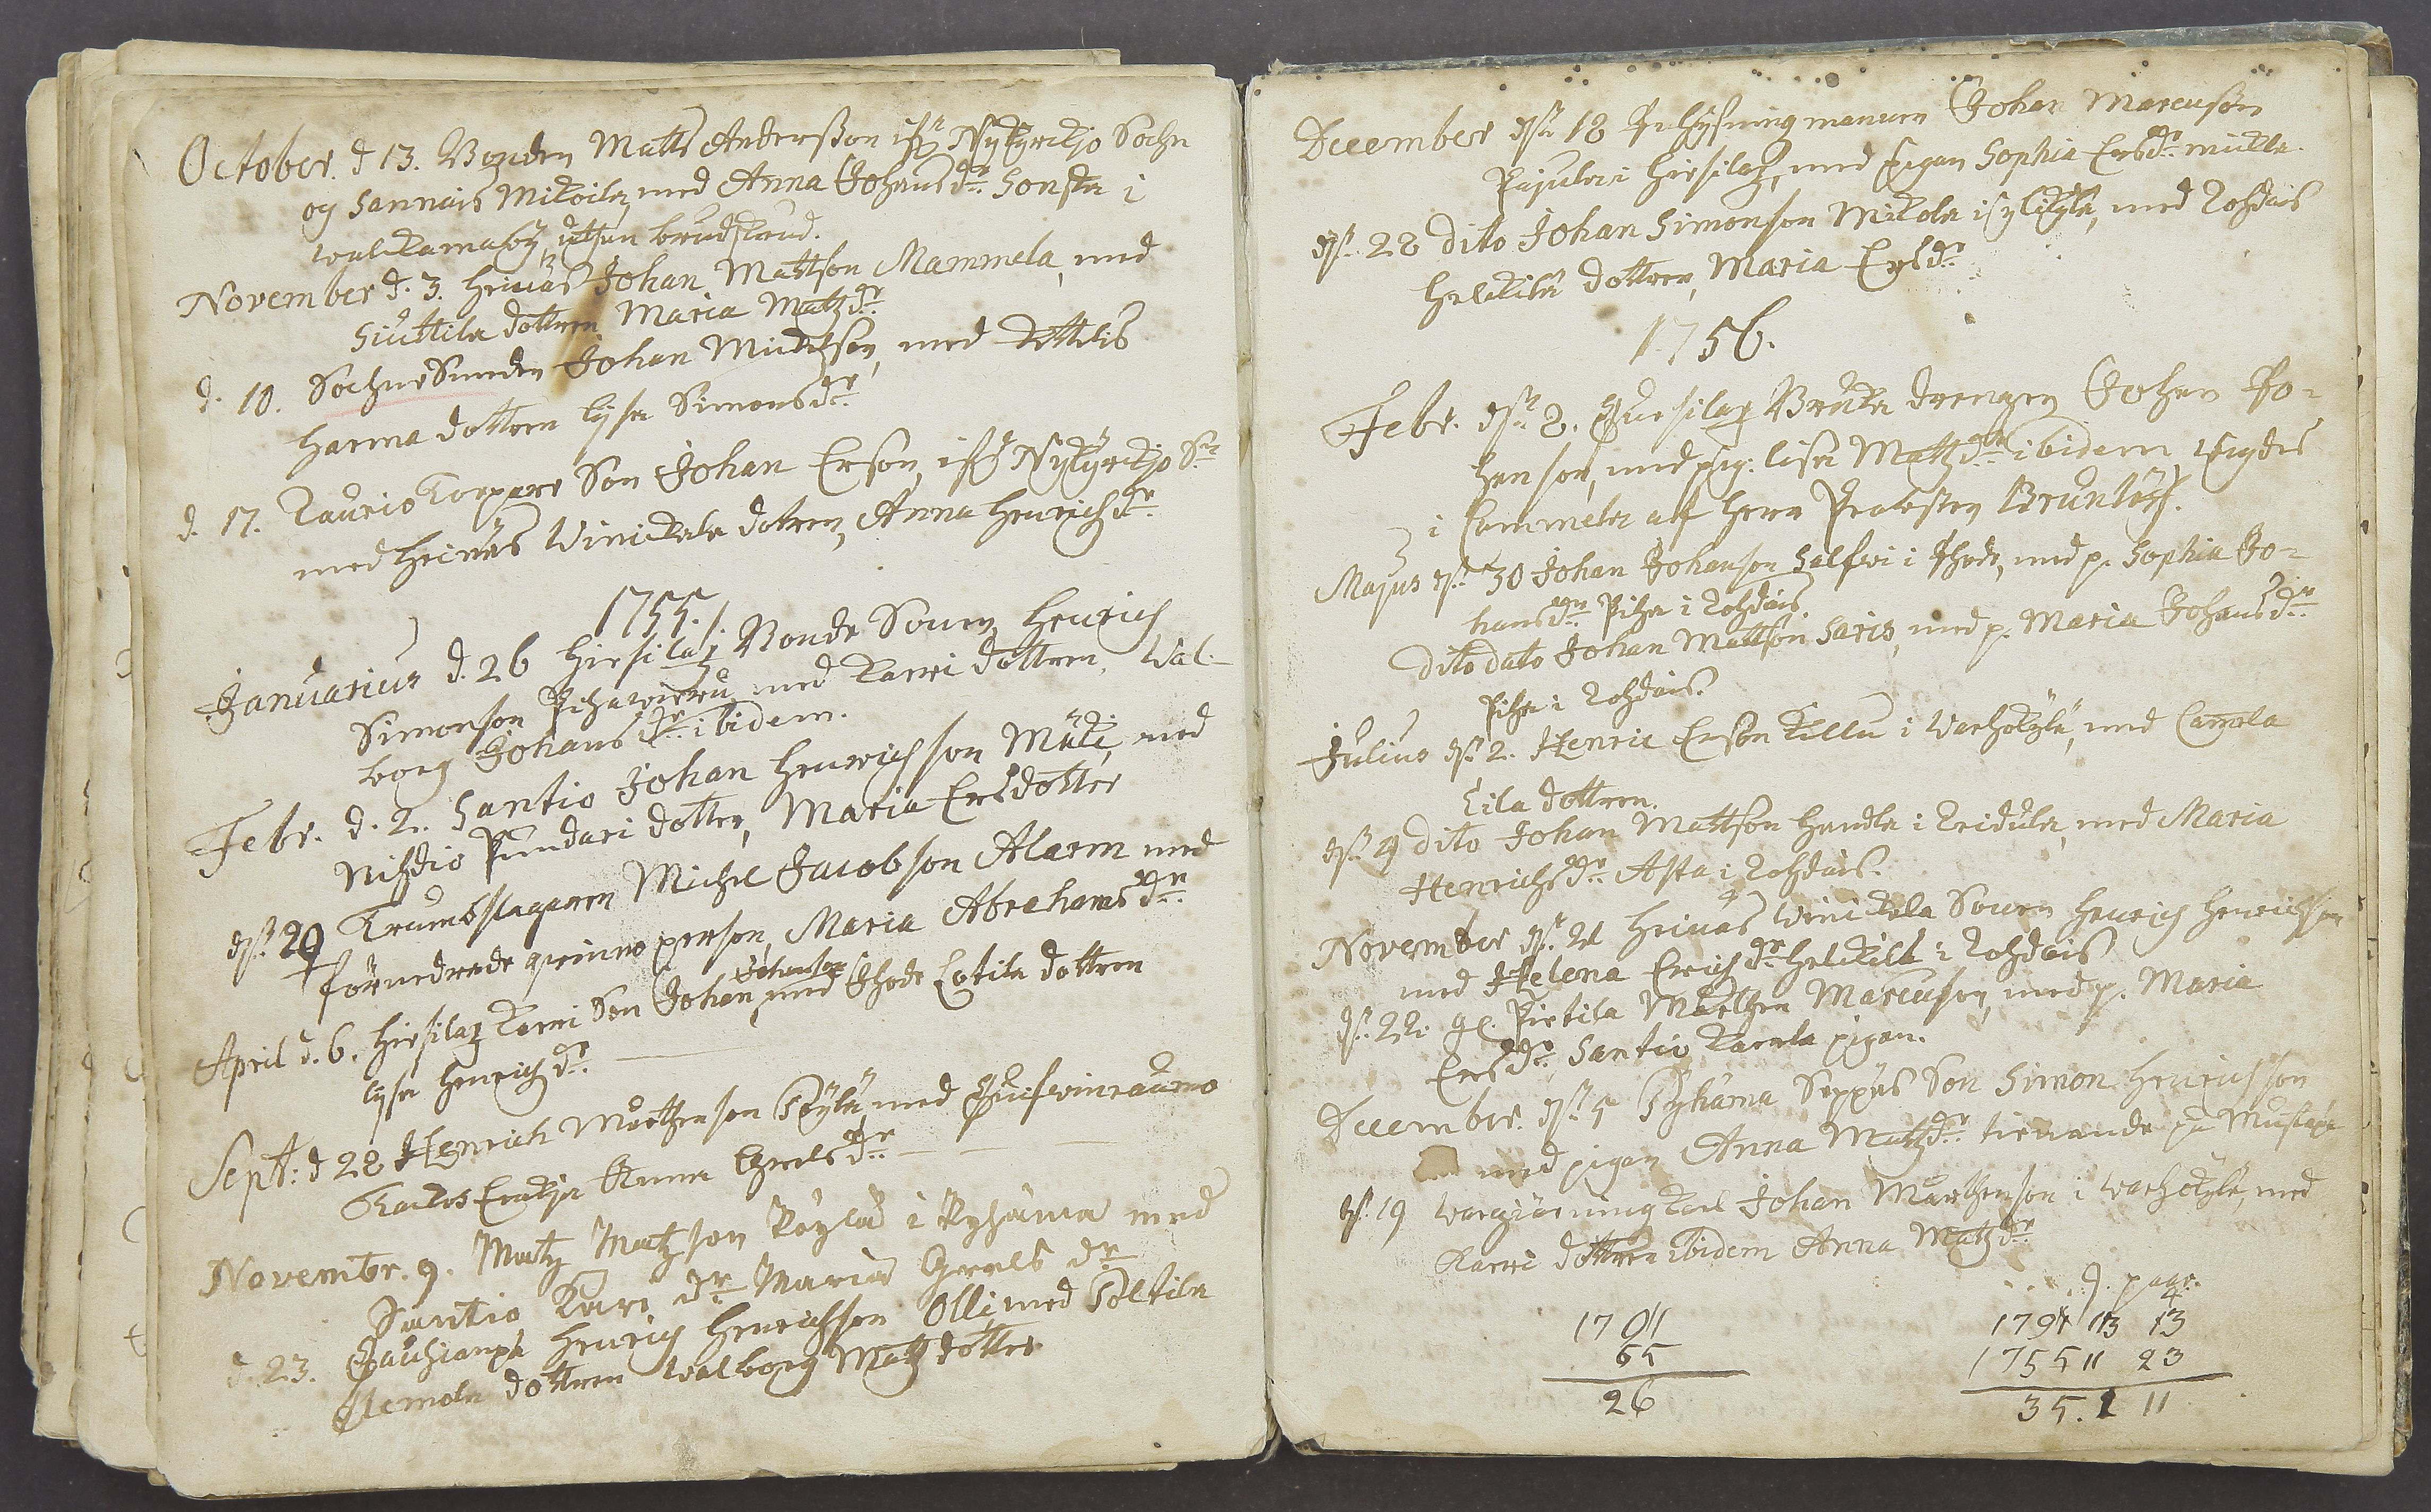 October. d 13. Bonden Matts Andersson ifrå Nykyrckjo Sochn
og Sannais Mickoila, med Anna Johansdr Sonsta i
Walckamaby, uthan brudstud.
November d. 3. Heinäs Johan Mattson Mammela, med
Siuttila dottren Maria Matzdr
d. 10. SochneSmeden Johan Michelson, med Kettelis
Harma dottren Lijsa Simonsdr
d. 17. Laurio Torpare Son Johan Erson, ifrå Nykyrckjo Sn
med Heinäs Winickala dotren, Anna Henrichdr
1755./.
Januarius d. 26 Hirsilax Bonde Sonen Henrich
Simonson Pihawieru, med Karri dottren, Wal-
borg Johansdr ibidem.
Febr. d. 2. Santio Johan Henrichson Mäki, med
Nihdio Pundari dotter, Maria Ersdotter
dn 29 Trumbslagaren Michel Jacobson Alarm med
förnedrade qwinnoperson, Maria Abrahamsdr
April d. 6. Hirsilax Karri Son Johan Johanson, med Ihode Eotila dottren
Lijsa Henrichdr.
Sept: d 28 Henrich Mårthenson Pöylä, med
Anna Grelsdr
Novembr. 9. Matz Matzson Pöylä i Ryhäma med
Santio Kari dr Maria Grels dr
d. 23. Jauhianpä Henrich Henrichson Olli, med Poltila
Ilemola dottren Walborg Matzdotter
December dn 18 Inhysningmannen Johan Marcuson
Pajula i Hirsilax, med Pigan Sophia Ersdr
dn 28 dito Johan Simonson Mickola i Sylikylä, med Lohdais
Heleckilä dottren, Maria Ersdr
1756.
Febr. dn 2. Hirsilax Bruks drengen Johan Jo-
hanson, med pig: Lisa Matzdr ibidem Wigdes
i Cammela af Herr Probsten Brunlöff.
Majus dn 30 Johan Johanson Salfwi i Ihode, med p. Sophia Jo-
hansdr Piha i Lohdais.
Dito dato Johan Mattson Saris, med p. Maria Johansdr
Piha i Lohdais.
Julius dn 2. Henric Erson Killu i Warhokylä, med Camela
Eila dottren.
dn 9 dito Johan Mattson Handla i Leidula, med Maria
Henrichsdr Asta i Lohdais.
November dn 21 Heinäs Winickala Sonen Henrich Henrichson
med Helena Erichdr Heleckilä i Lohdais
dn 22. gl. Pietila Mårthen Marcuson, med p. Maria
Ersdr, Santio Karrla pigan.
December. dn 5 Ryhäma Seppäs Son Simon Henrichson
med pigan Anna Matzdr tienande på Mustapä
dn 19 Wargiärningkarl Johan Mårthenson i Warhokylä, med
Karri dottren ibidem Anna Matzdr
9. pag.
1701
55
26
1791 113 13
1755 11 23
35. 1 11